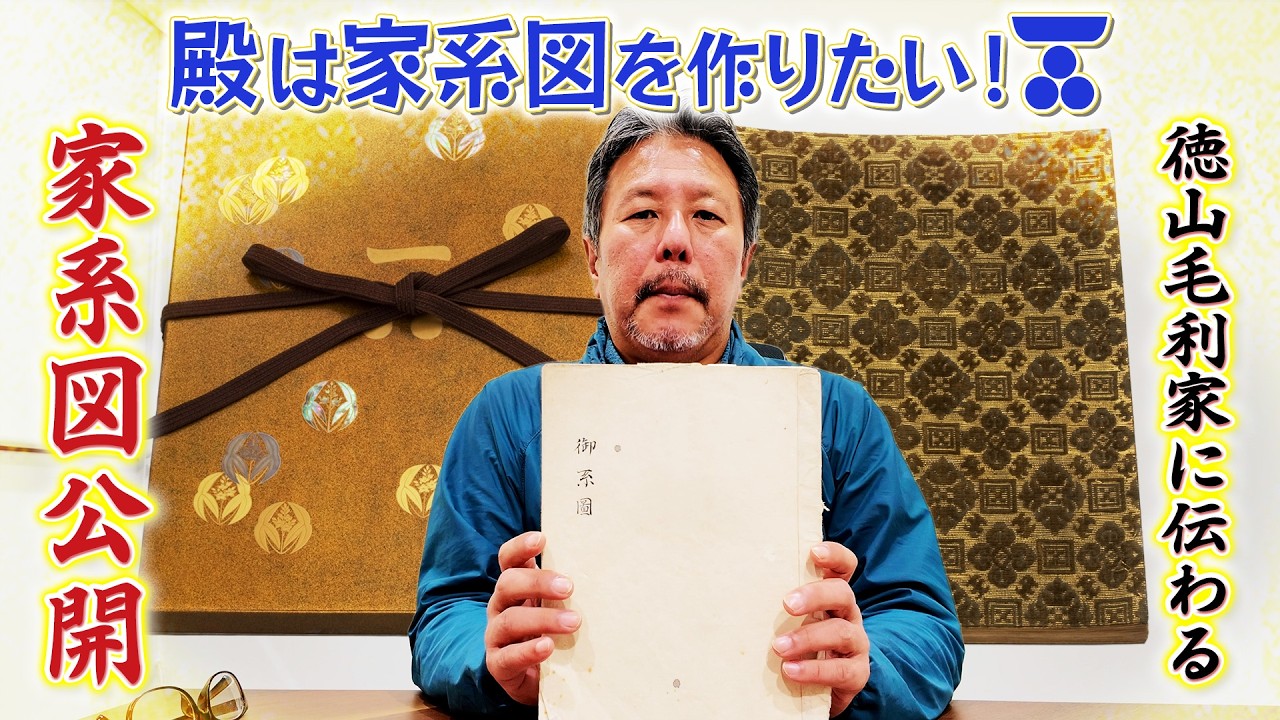 殿は家系図を作りたい!
徳山毛利家に伝わる
家系図公開
御系圖